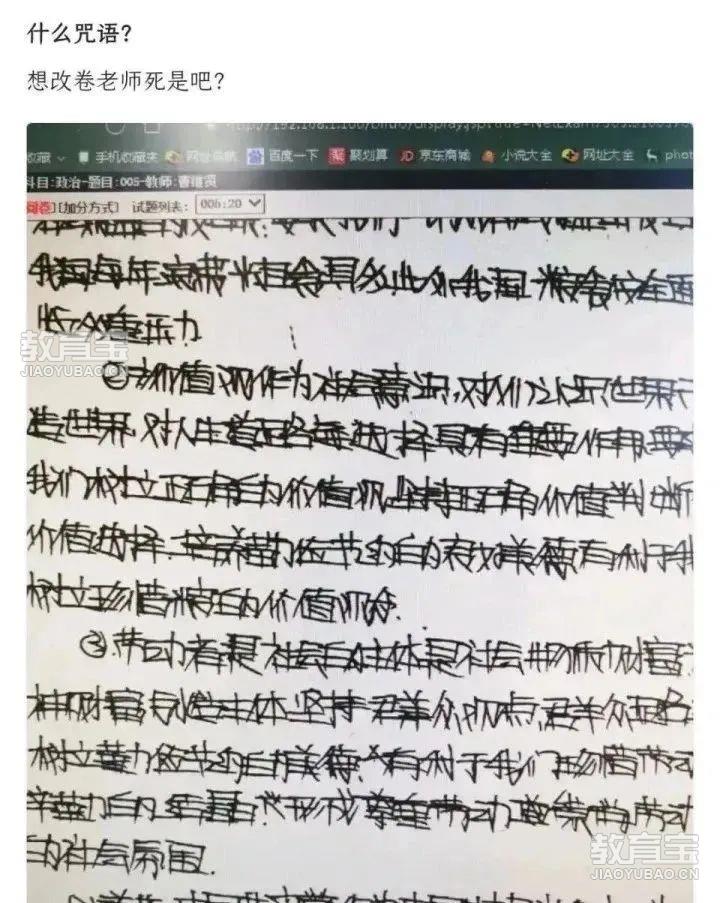 什么咒语?
想改卷老师死是吧?
收藏 手机收藏夹 网址导航 百度一下 聚划算 JD 京东商城 小说大全 网址大全 phot
科目:政治-题目:005-教师:曹维贡
问卷][加分方式] 试题列表: 006:20
我国每年浪费 我国 粮食
重压力
教育宝
JIAOYUBAO.CN
②价值观作为社会意识,对人们认识世界
造世界,对人生道路的选择具有重要作用
我们树立正确的价值观,坚持正确的价值判断
价值选择.培养勤俭节约的传统美德有利于我
树立珍惜粮食的价值观念.
③劳动者是社会的主体是社会物质财富
神财富创造主体.坚持群众观点,群众路
树立勤俭节约的美德.有利于我们珍惜劳动
辛勤的结晶.形成尊重劳动 劳动
的社会氛围.
教育宝
JIAOYUBAO.CN